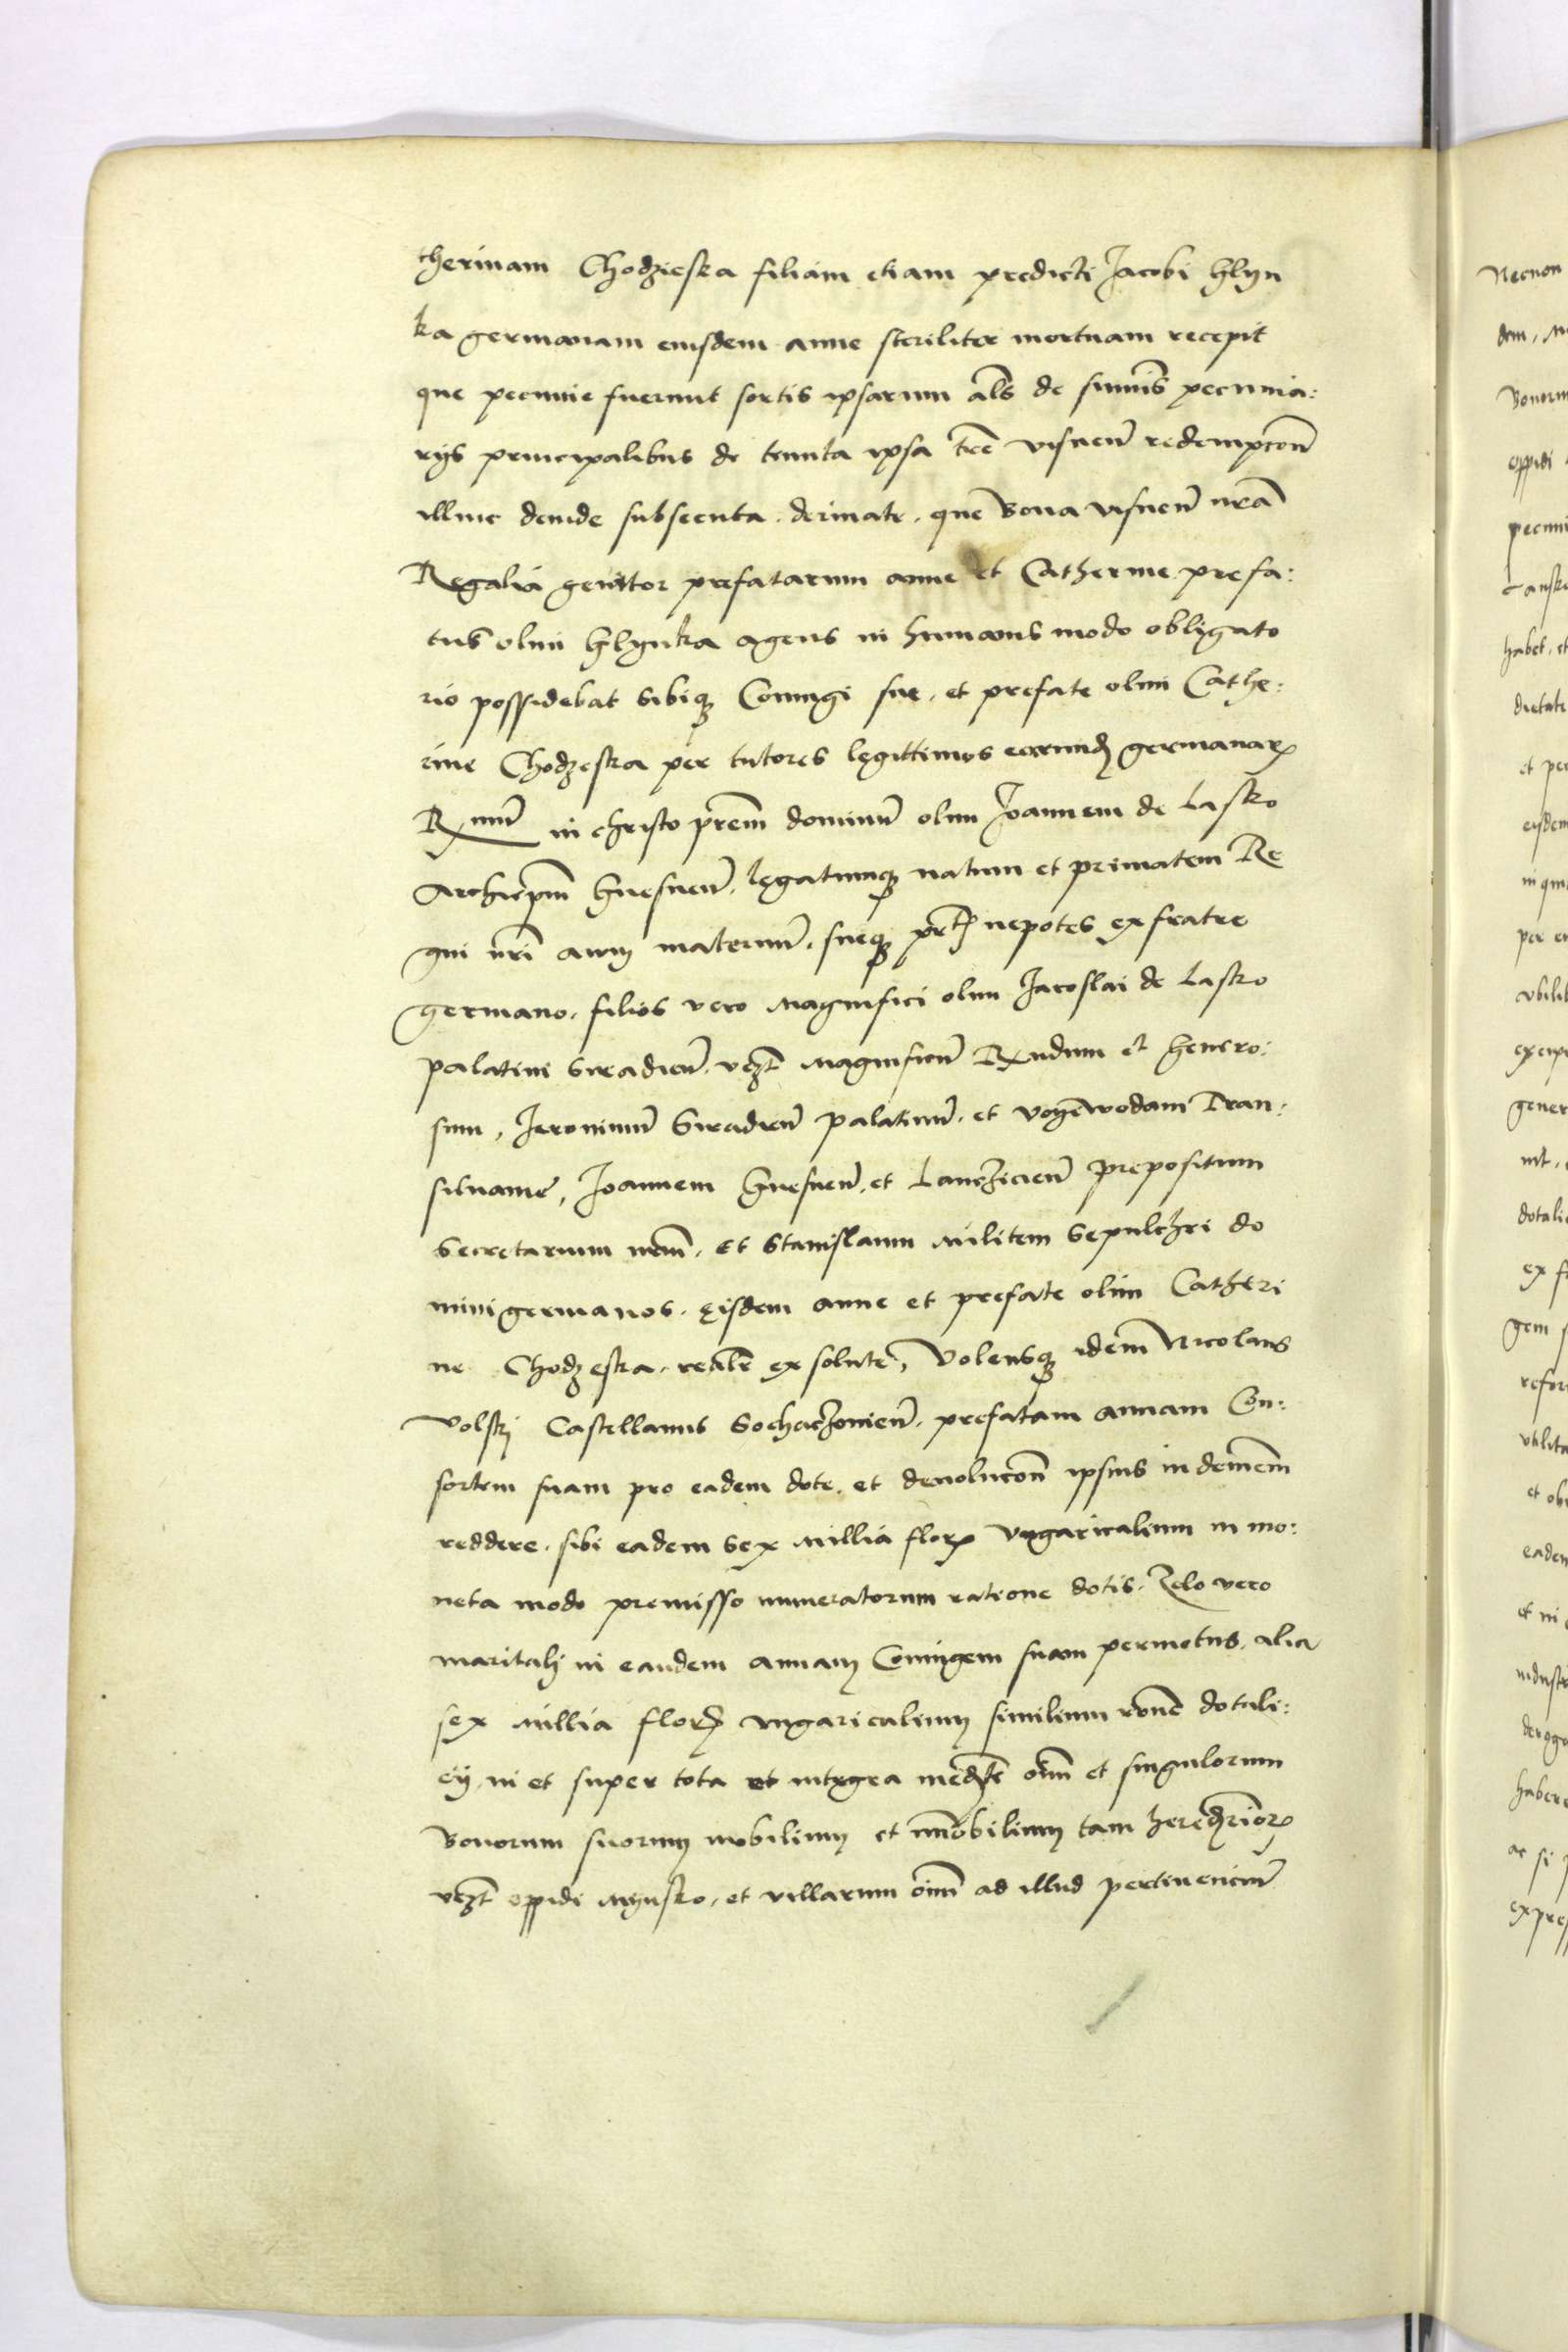 therinam Chodzieska filiam etiam predicti Jacobi hlyn
ka germanam eiusdem anne steriliter mortuam recepit
que pecunie fuerunt sortis ipsarum als de summis pecunia:
rijs principalibus de tenuta ipsa tre visnen redempcon
illinc deinde subsecuta. deriuate. que Bona visnen nra
Regalia genitor prefatarum anne et Catherine prefa:
tus olim hlynka agens in humanis modo obligato
rio possidebat sibiq Coniugi sue. et prefate olim Cathe:
rine Chodzeska per tutores legittimos earund germanar
Rmum in christo prem dominum olim Joannem de Lasko
Archiepm Gnesnen. legatumq natum et primatem Re
gni nri auum maternum. sueq nepotes ex fratre
germano. filios vero Magnifici olim Jaroslai de Lasko
palatini Siradien. vezt Magnificum Rndum et Genero:
sum, Jeronimum Siradien palatinum. et voyewodam Tran:
siluanie, Joannem Gnesnen. et Lancicien prepositum
Secretarium nrm. Et Stanislaum Militem Sepulchri do
mini germanos. eisdem anne et prefate olim Catheri
ne Chodzeska. realr exsolute, Volensq idem Nicolaus
Volskj Castellanus Sochaczouien. prefatam annam Con:
sortem suam pro eadem dote. et deuolucon ipsius indemem
reddere. sibi eadem Sex Millia flor vngaricalium in mo:
neta modo premisso numeratorum ratione dotis. Zelo vero
maritalj in eandem annam Coniugem suam permotus. alia
sex Millia flor vngaricalium similium rone dotali:
cij. in et super tota et integra medtte oim et singulorum
Bonorum suorum mobilium et immobilium tam heredrior
vezt oppidi Mynsko. et villarum oim ad illud pertinencium